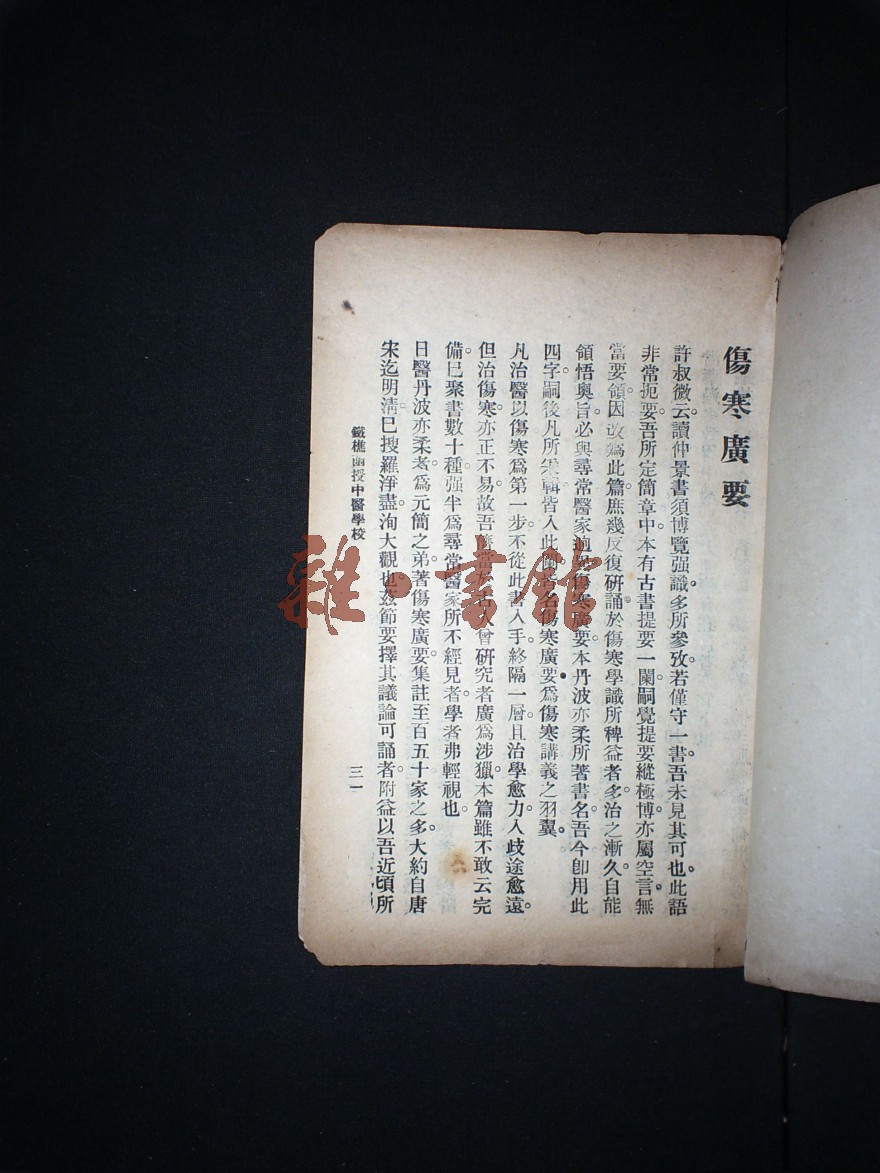 傷寒廣要
許叔微云。讀仲景書須博覽强識。多所參攷。若僅守一書。吾未見其可也。此語
非常扼要。吾所定簡章中。本有古書提要一闌。嗣覺提要縱極博。亦屬空言。無
當要領。因改爲此篇。庶幾反復研誦。於傷寒學識所稗益者多。治之漸久。自能
領悟奧旨。必與尋常醫家迥異。傷寒廣要本丹波亦柔所著書名。吾今卽用此
四字。嗣後凡所采輯。皆入此闌。皆名傷寒廣要。爲傷寒講義之羽翼。
凡治醫以傷寒爲第一步。不從此書入手。終隔一層。且治學愈力。入歧途愈遠。
但治傷寒亦正不易。故吾儕當於古人曾研究者。廣爲涉獵。本篇雖不敢云完
備。巳聚書數十種。强半爲尋常醫家所不經見者。學者弗輕視也。
日醫丹波亦柔者。爲元簡之弟。著傷寒廣要。集註至百五十家之多。大約自唐
宋迄明淸。巳搜羅淨盡。洵大觀也。茲節要擇其議論可誦者。附益以吾近頃所
鐵樵函授中醫學校
三一
雜·書館